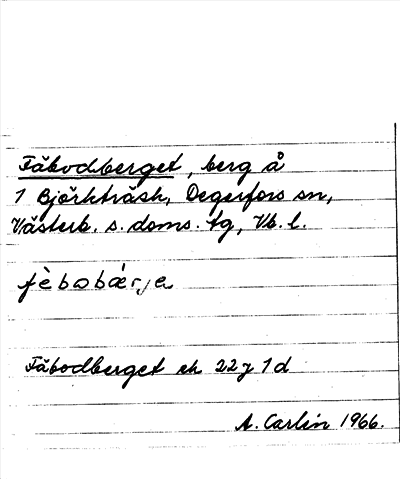 Fäbodberget, berg å
1 Björkträsk, Degerfors sn,
Västerb. s. doms. tg, Vb. l.
fèbobárje
Fäbodberget ek 22 J 1 d
A. Carlin 1966.